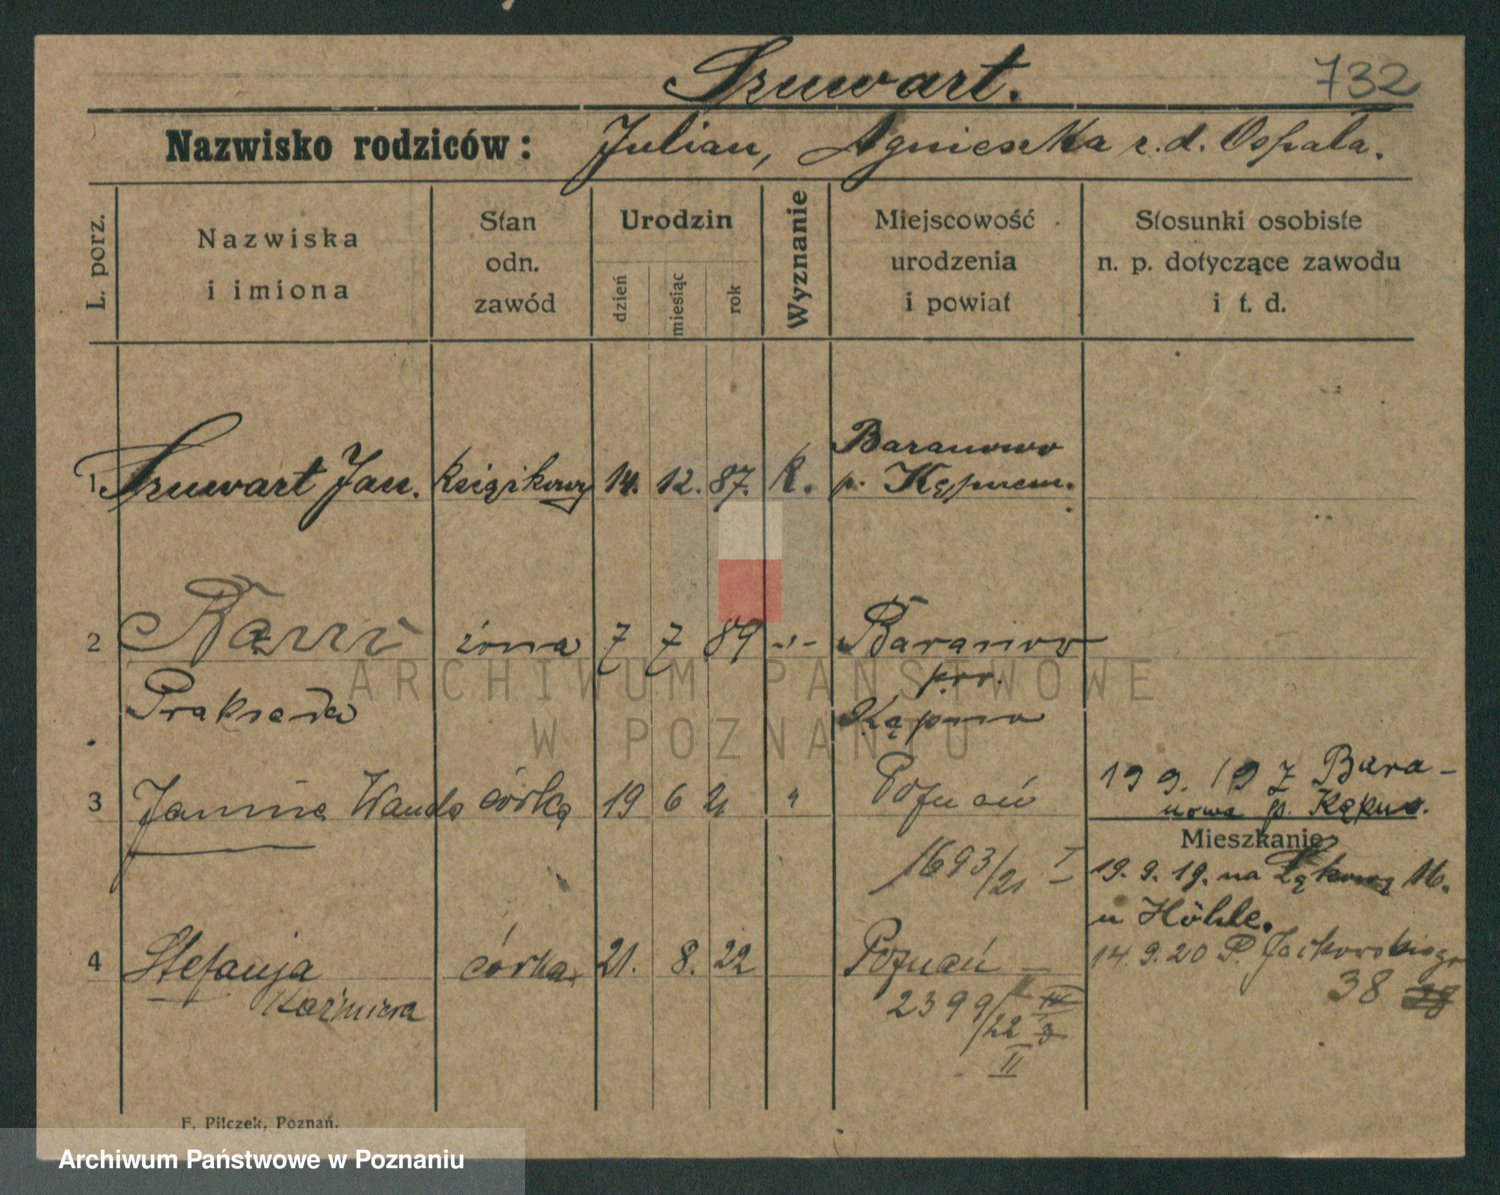 Szuwart.
732
Nazwisko rodziców: Julian, Agnieszka z. d. Ospała.
L. porz.
Nazwiska
i imiona
Stan
odn.
zawód
Urodzin
dzień
miesiąc
rok
Wyznanie
Miejscowość
urodzenia
i powiat
Stosunki osobiste
n. p. dotyczące zawodu
i t. d.
1 Szuwart Jan. książkowy 14. 12. 87. K. Baranowo
p. Kępnem.
2 żona 7 7 89 -"- Baranow
pow.
Prakseda Kępno
3 Janina Wanda córka 19 6 21 " Poznań
19 9. 19 z Bara-
nowa p. Kępno.
Mieszkanie
1693/21 I
19. 9. 19. na Łąkową 16.
u Höhle.
4 Stefanja córka 21. 8. 22 Poznań
Kaźmiera
14 9. 20 P. Jackowskiego
38
2399/22
II
F. Pilczek, Poznań.
ARCHIWUM PAŃSTWOWE
W POZNANIU
Archiwum Państwowe w Poznaniu